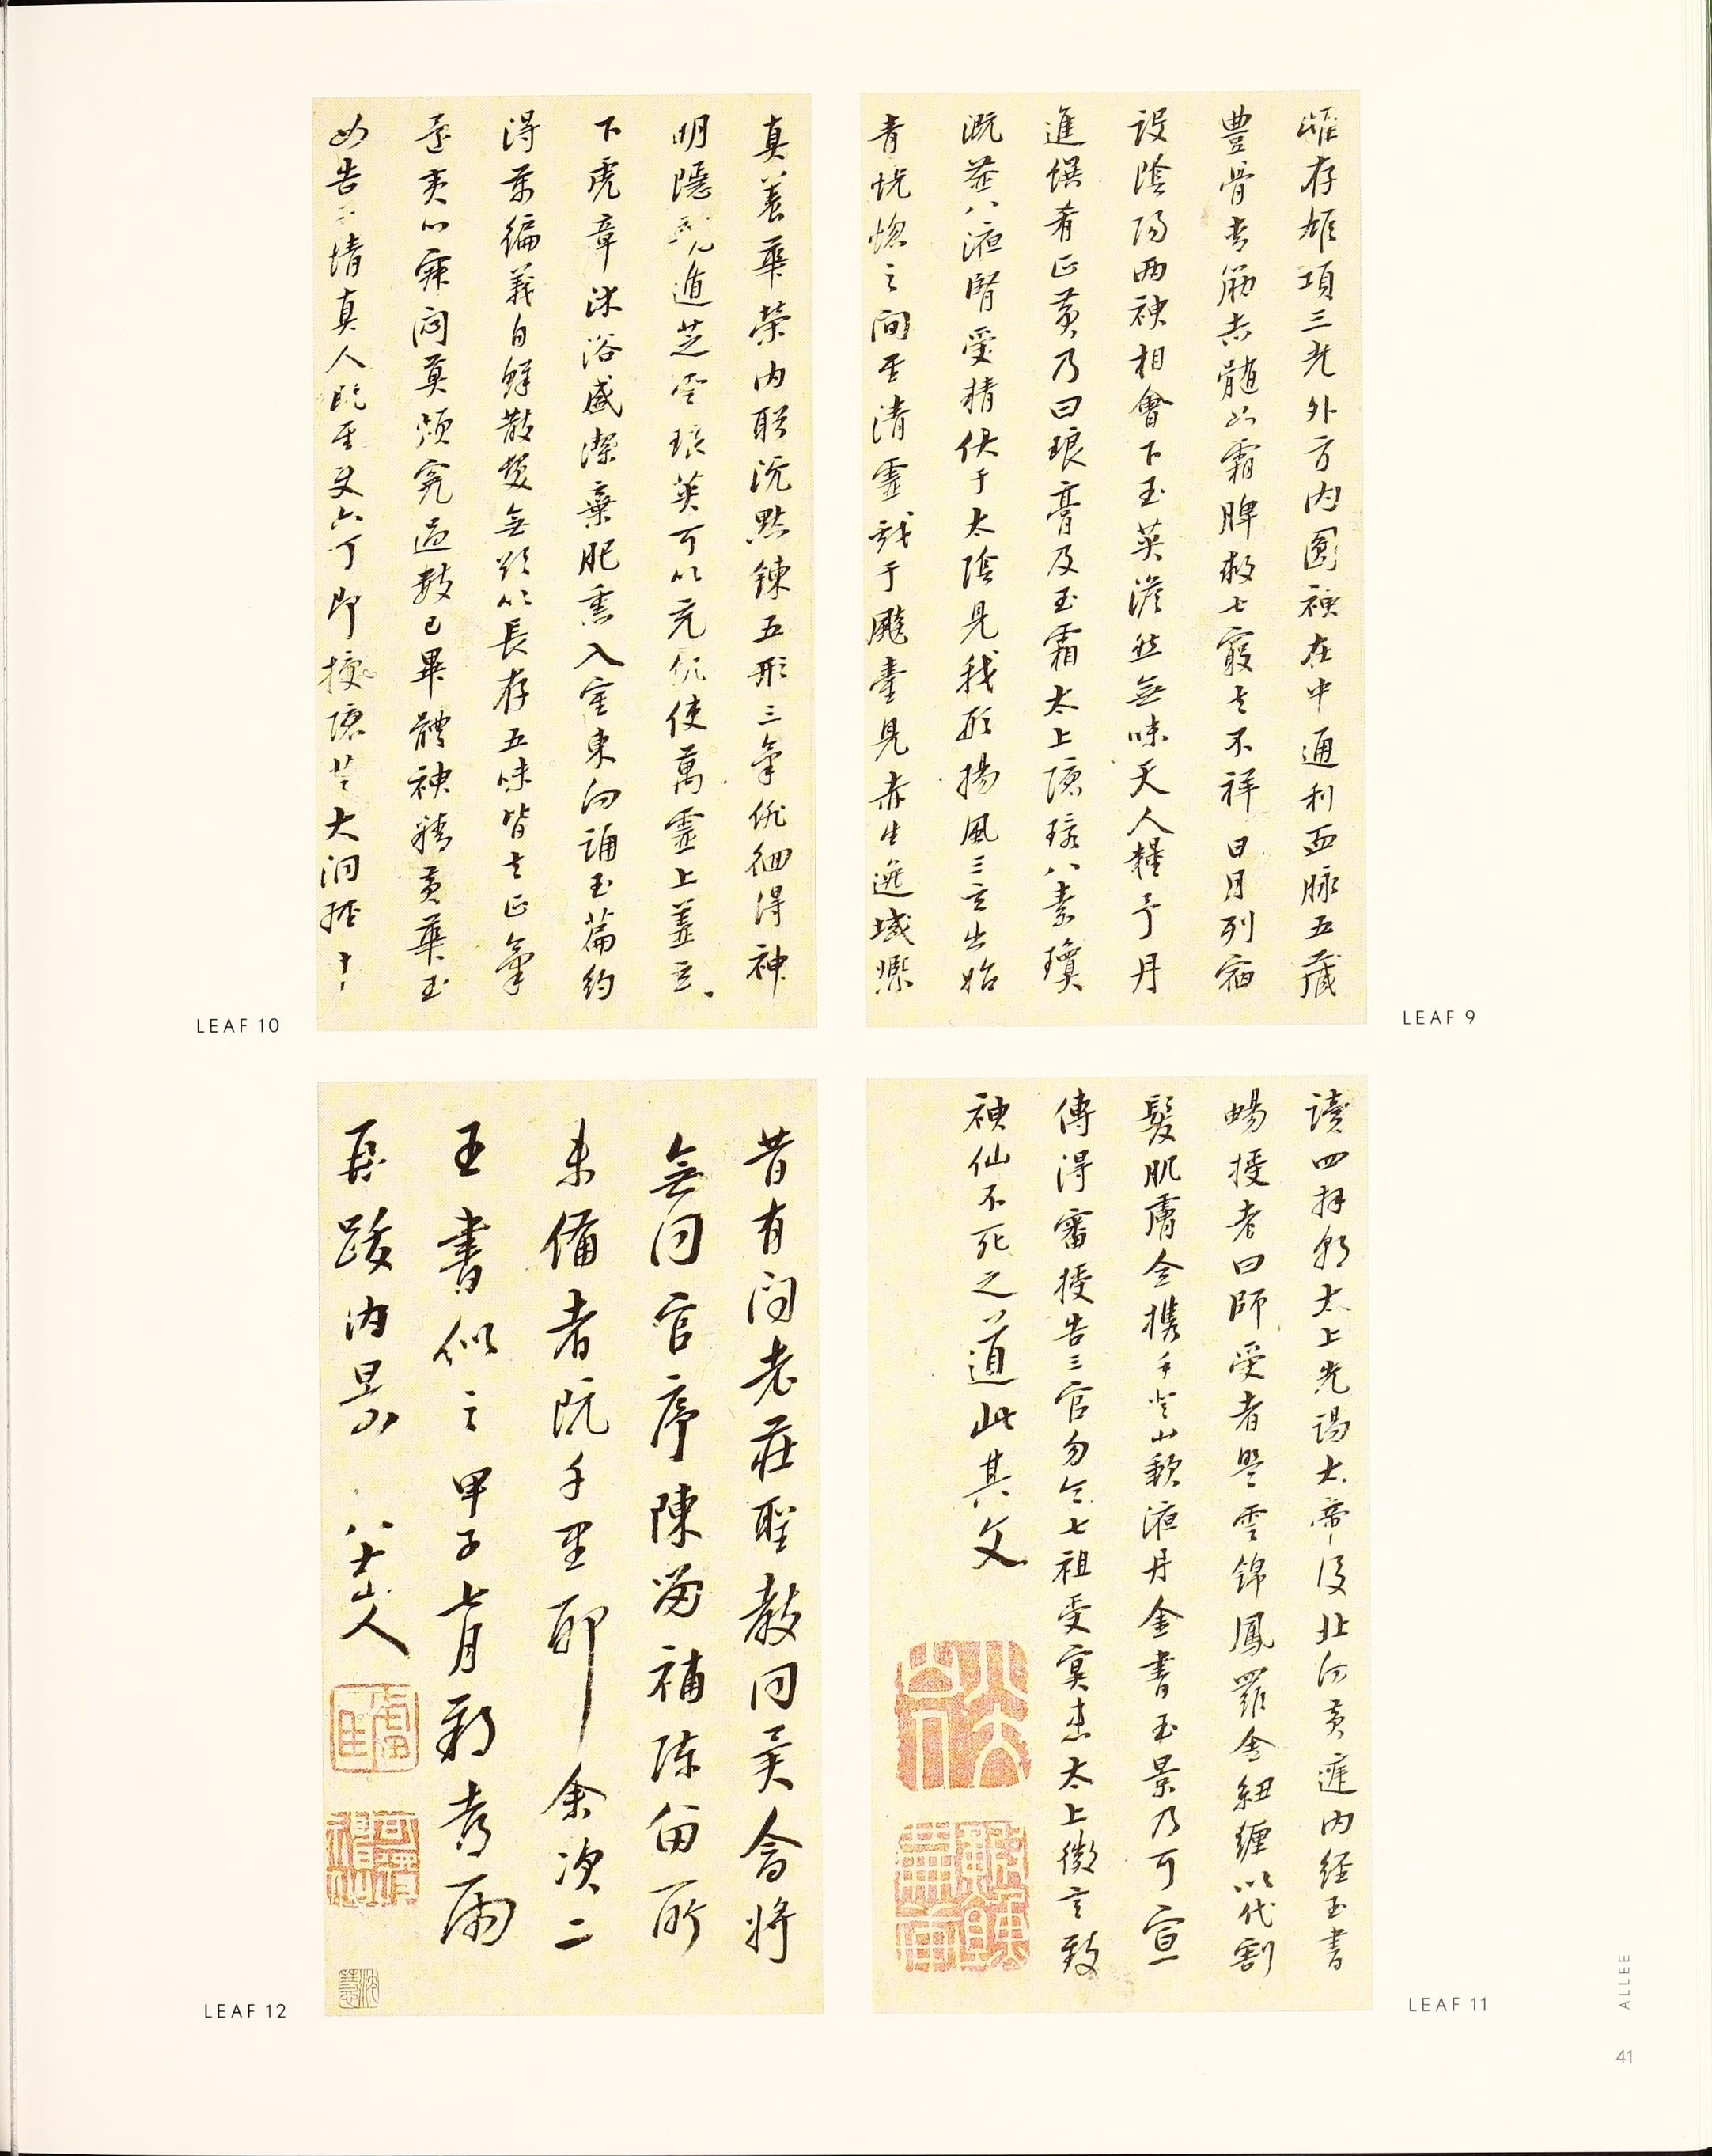 雌存雄項三光外方内圓神在中通利血脉五藏
豐骨青筋赤髓如霜脾救七竅去不祥日月列宿
設陰陽兩神相會下玉英澹然無味天人糧子丹
進饌肴正黃乃曰琅膏及玉霜太上隱環八素瓊
溉益八液腎受精伏于太陰見我形揚風三玄出始
青恍惚之間至清靈戲于飈臺見赤生逸域熙
LEAF 9
真養華榮内盼沉默鍊五形三氣徘徊得神
明隱龍遁芝雲琅英可以充飢使萬靈上蓋玄
下虎章沐浴盛潔棄肥熏入室東向誦玉篇約
得萬徧義自鮮散髮無欲以長存五味皆至正氣
還夷心寂悶莫煩冤過數已畢體神精黃華玉
女告子情真人既至使六丁即授隱芝大洞經十
LEAF 10
讀四拜朝太上先謁太帝後北向黃庭内經玉書
暢授者曰師受者盟雲錦鳳羅金紐纏以代割
髮肌膚全攜手登山歃液丹金書玉景乃可宣
傳得審授告三官勿令七祖受冥患太上微言致
神仙不死之道此其文
LEAF 11
昔有問老莊聖教同異會將
無同官序陳留補陳留所
未備者阮千里耶余次二
王書似之甲子七月新喜雨
再跋内景 八大山人
LEAF 12
ALLEE
41